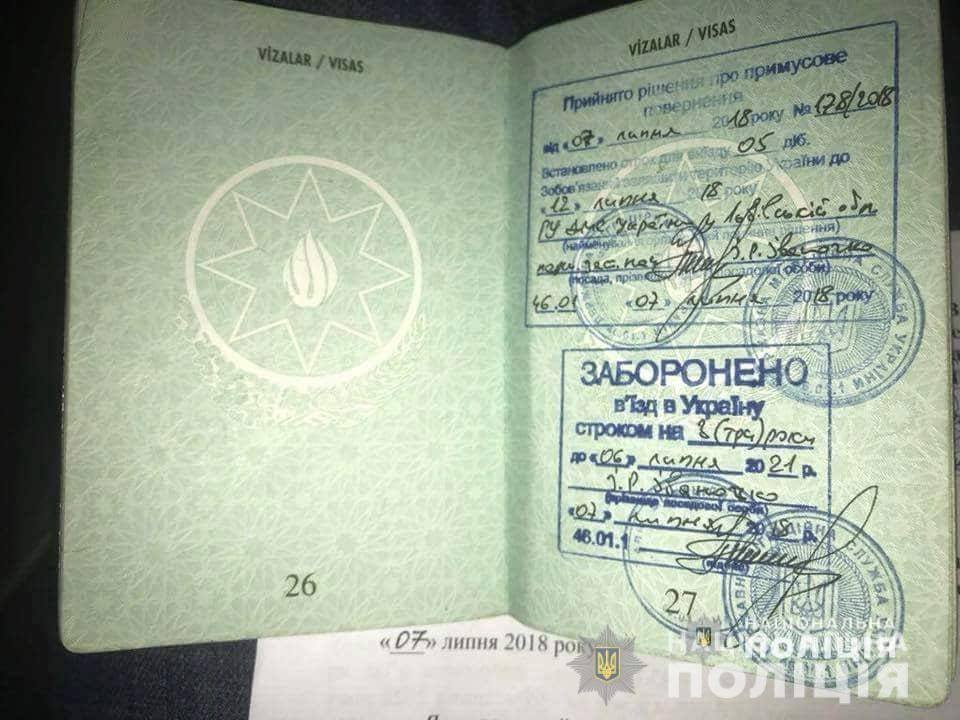 VİZALAR / VISAS
26
VİZALAR / VISAS
Прийнято рішення про примусове
повернення
від «07» липня 2018 року № 178/2018
Встановлено строк для виїзду 05 діб.
Зобов'язаний залишити територію України до
«12» липня 2018 року
ГУ ДМС України у Львівській обл
(найменування органу, прийняття рішення)
(посада, прізвище посадової особи)
46.01 «07» липня 2018 року
ЗАБОРОНЕНО
в'їзд в Україну
строком на 3 (три) роки
до «06» липня 2021 р.
І.Р. Іваночко
(прізвище посадової особи)
«07» липня 2018 р.
46.01.1
(підпис)
27
СЛУЖБА УКРАЇНИ
СЛУЖБА
«07» липня 2018 року
НАЦІОНАЛЬНА
ПОЛІЦІЯ